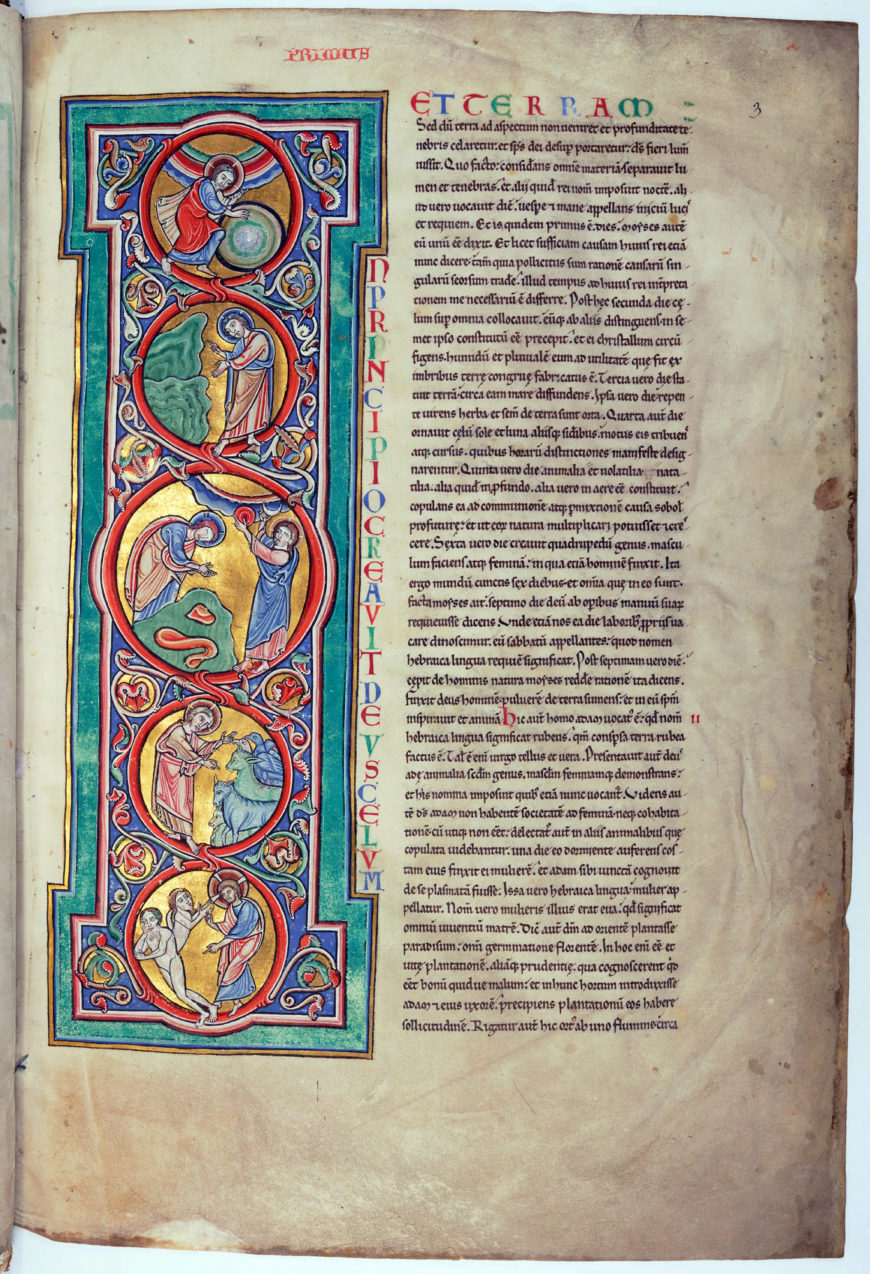 PRIMUS
NPRINCIPIOCREAVITDEVSCELVM
ET TERRAM
3
Sed dũ terra ad aspectum non veniret et profunditate te
nebris celaretur: et sp̄s dei desup portaretur: ds̄ fieri lum̄
iussit. Quo facto: considans omnē materiā separauit lu
men et tenebras. et alij quid rei nom̄ imposuit noctē. alij
uero uocauit diē. uespe ⁊ mane appellans iniciũ luci
et requiem. Et is quidem primus ē dies. moyses autē
eũ unũ eē dixit. Et licet sufficiam causam huius rei etiā
nunc dicere. tam̄ quia pollicitus sum rationē causarũ sin
gularũ seorsum tradē. illud tempus ad huius rei int̄preta
tionem me necessariũ ē differre. Post hęc secunda die cę
lum sup omnia collocauit. eũq ab aliis distinguens in se
met ipso constitutũ eē precepit. et ei christallum circũ
figens. humidũ et pluuialē eum ad utilitatē que fit ex
imbribus terrę congruę fabricatus ē. Tercia uero die sta
tuit terrā. circa eam mare diffundens. Ipsa uero die repen
te uirens herba et sem̄ de terra sunt orta. Quarta aut̄ die
ornauit cęlũ sole et luna aliisq sidibus. motus eis tribuen
atq cursus. quibus horarũ distinctiones manifeste desig
narentur. Quinta uero die animalia et uolatilia nata
tilia. alia quid̄ in pfundo. alia uero in aere eē constituit.
copulans ea ad communionē atq pmixtionē causa sobol
profuturę: et ut eorum natura multiplicari potuisset ⁊ cre
cere. Sexta uero die creauit quadrupedũ genus. mascu
lum faciens atq feminā. in qua etiā hominē finxit. Ita
ergo mundũ cunctis sex diebus et om̄ia que in eo sunt.
facta moyses ait. septimo die deũ ab opibus manuũ suarum
requieuisse dicens. Unde etiā nos ea die laborib ppriis ua
care dinoscimur. eũ sabbatũ appellantes: quod nomen
hebraica lingua requiē significat. Post septimam uero diē.
cępit de hominis natura moyses reddē rationē ita dicens.
Finxit deus hominē puluerē de terra sumens: et in eũ spm̄
inspirauit et animā. Hic aut̄ homo adam uocat ē: qd nom̄
II
hebraica lingua significat rubeus. qm̄ conspsa terra rubea
factus ē. Tal ē eni uirgo tellus et uera. Presentauit aut̄ deus
adę animalia sedm̄ genus. masclm̄ feminamq demonstrans:
et his nomina imposuit quib etiā nunc uocant̄. Uidens au
tē ds̄ adam non habentē societatē ad feminā. neq cohabita
tionē cũ utiq non eēt: delectat̄ aut̄ in aliis animalibus que
copulata uidebantur. una die eo dormiente auferens cos
tam eius finxit ei mulierē. et adam sibi iunctā cognouit
de se plasmatā fuisse. Issa uero hebraica lingua mulier ap
pellatur. Nom̄ uero mulieris illius erat eua. qd significat
omniũ uiuentiũ matrē. Dic̄ aut̄ dm̄ ad orientē plantasse
paradisum. omi germinatione florentē. In hoc eni eē et
uitę plantationē. aliāq prudentię. qua cognoscerent qd
eēt bonũ quid ue malum: et in hunc hortum introduxisse
adam ⁊ eius uxorē. precipiens plantationũ eos habere
sollicitudinē. Rigatur aut̄ hic ort ab uno flumine. circa